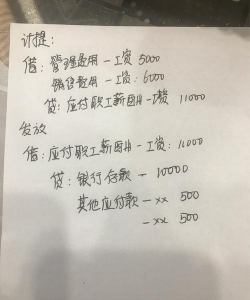 计提:
借: 管理费用 - 工资 5000
销售费用 - 工资: 6000
贷: 应付职工薪酬 - 工资 11000
发放
借: 应付职工薪酬 - 工资: 11000
贷: 银行存款 - 10000
其他应付款 - xx 500
- xx 500